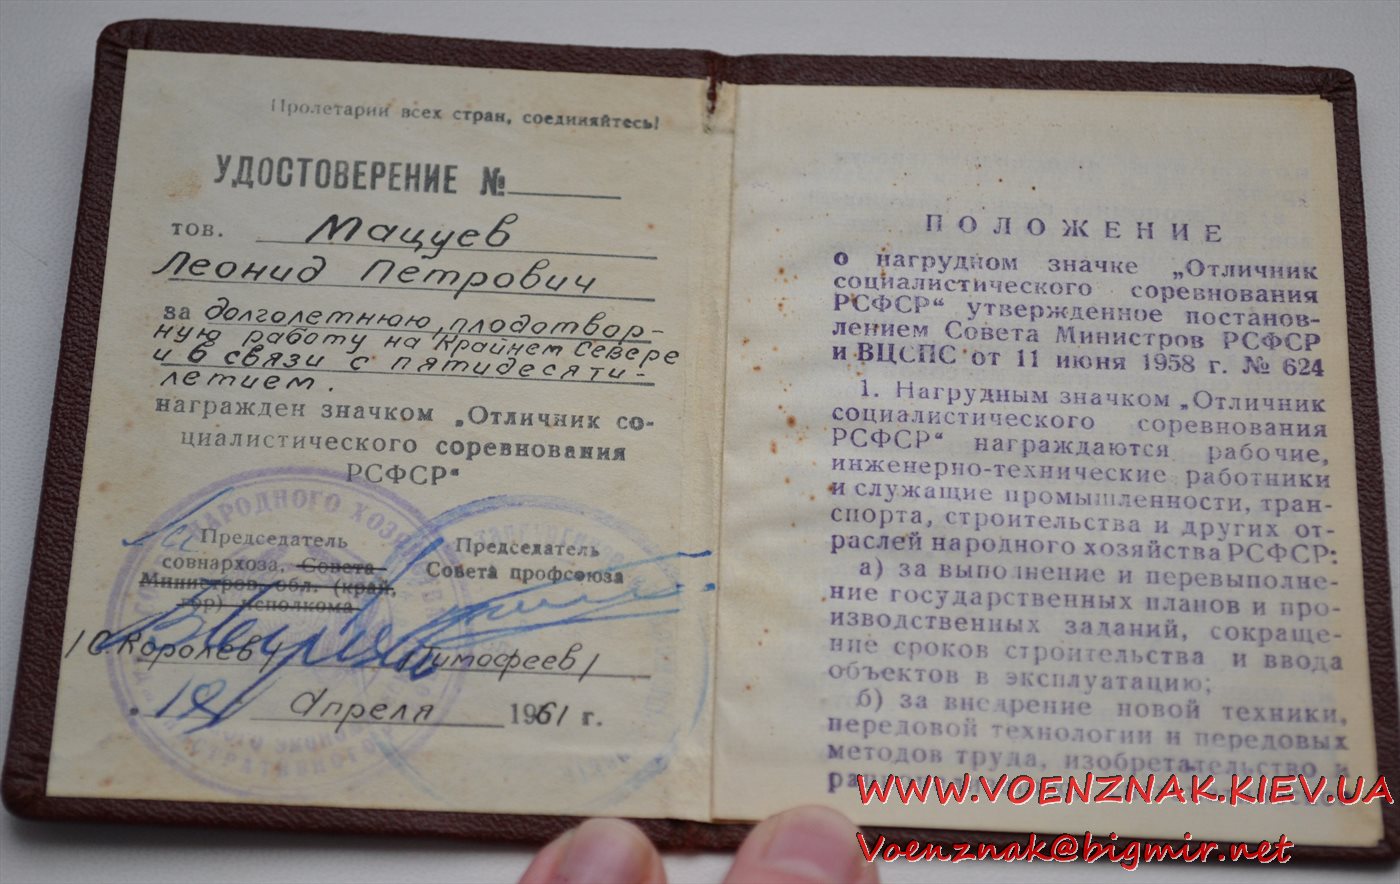 Пролетарии всех стран, соединяйтесь!
УДОСТОВЕРЕНИЕ №
тов. Мацуев
Леонид Петрович
за долголетнюю, плодотвор-
ную работу на Крайнем Севере
и в связи с пятидесяти-
летием.
награжден значком „Отличник со-
циалистического соревнования
РСФСР“
Председатель
совнархоза, Совета
Министров, обл. (край,
гор) исполкома
Председатель
Совета профсоюза
/С. Королев/
/Тимофеев/
Апреля 1961 г.
НАРОДНОГО ХОЗЯЙСТВА
ПОЛОЖЕНИЕ
о нагрудном значке „Отличник
социалистического соревнования
РСФСР“ утвержденное постанов-
лением Совета Министров РСФСР
и ВЦСПС от 11 июня 1958 г. № 624
1. Нагрудным значком „Отличник
социалистического соревнования
РСФСР“ награждаются рабочие,
инженерно-технические работники
и служащие промышленности, тран-
спорта, строительства и других от-
раслей народного хозяйства РСФСР:
а) за выполнение и перевыполне-
ние государственных планов и про-
изводственных заданий, сокраще-
ние сроков строительства и ввода
объектов в эксплуатацию;
б) за внедрение новой техники,
передовой технологии и передовых
методов труда, изобретательство и
WWW.VOENZNAK.KIEV.UA
Voenznak@bigmir.net